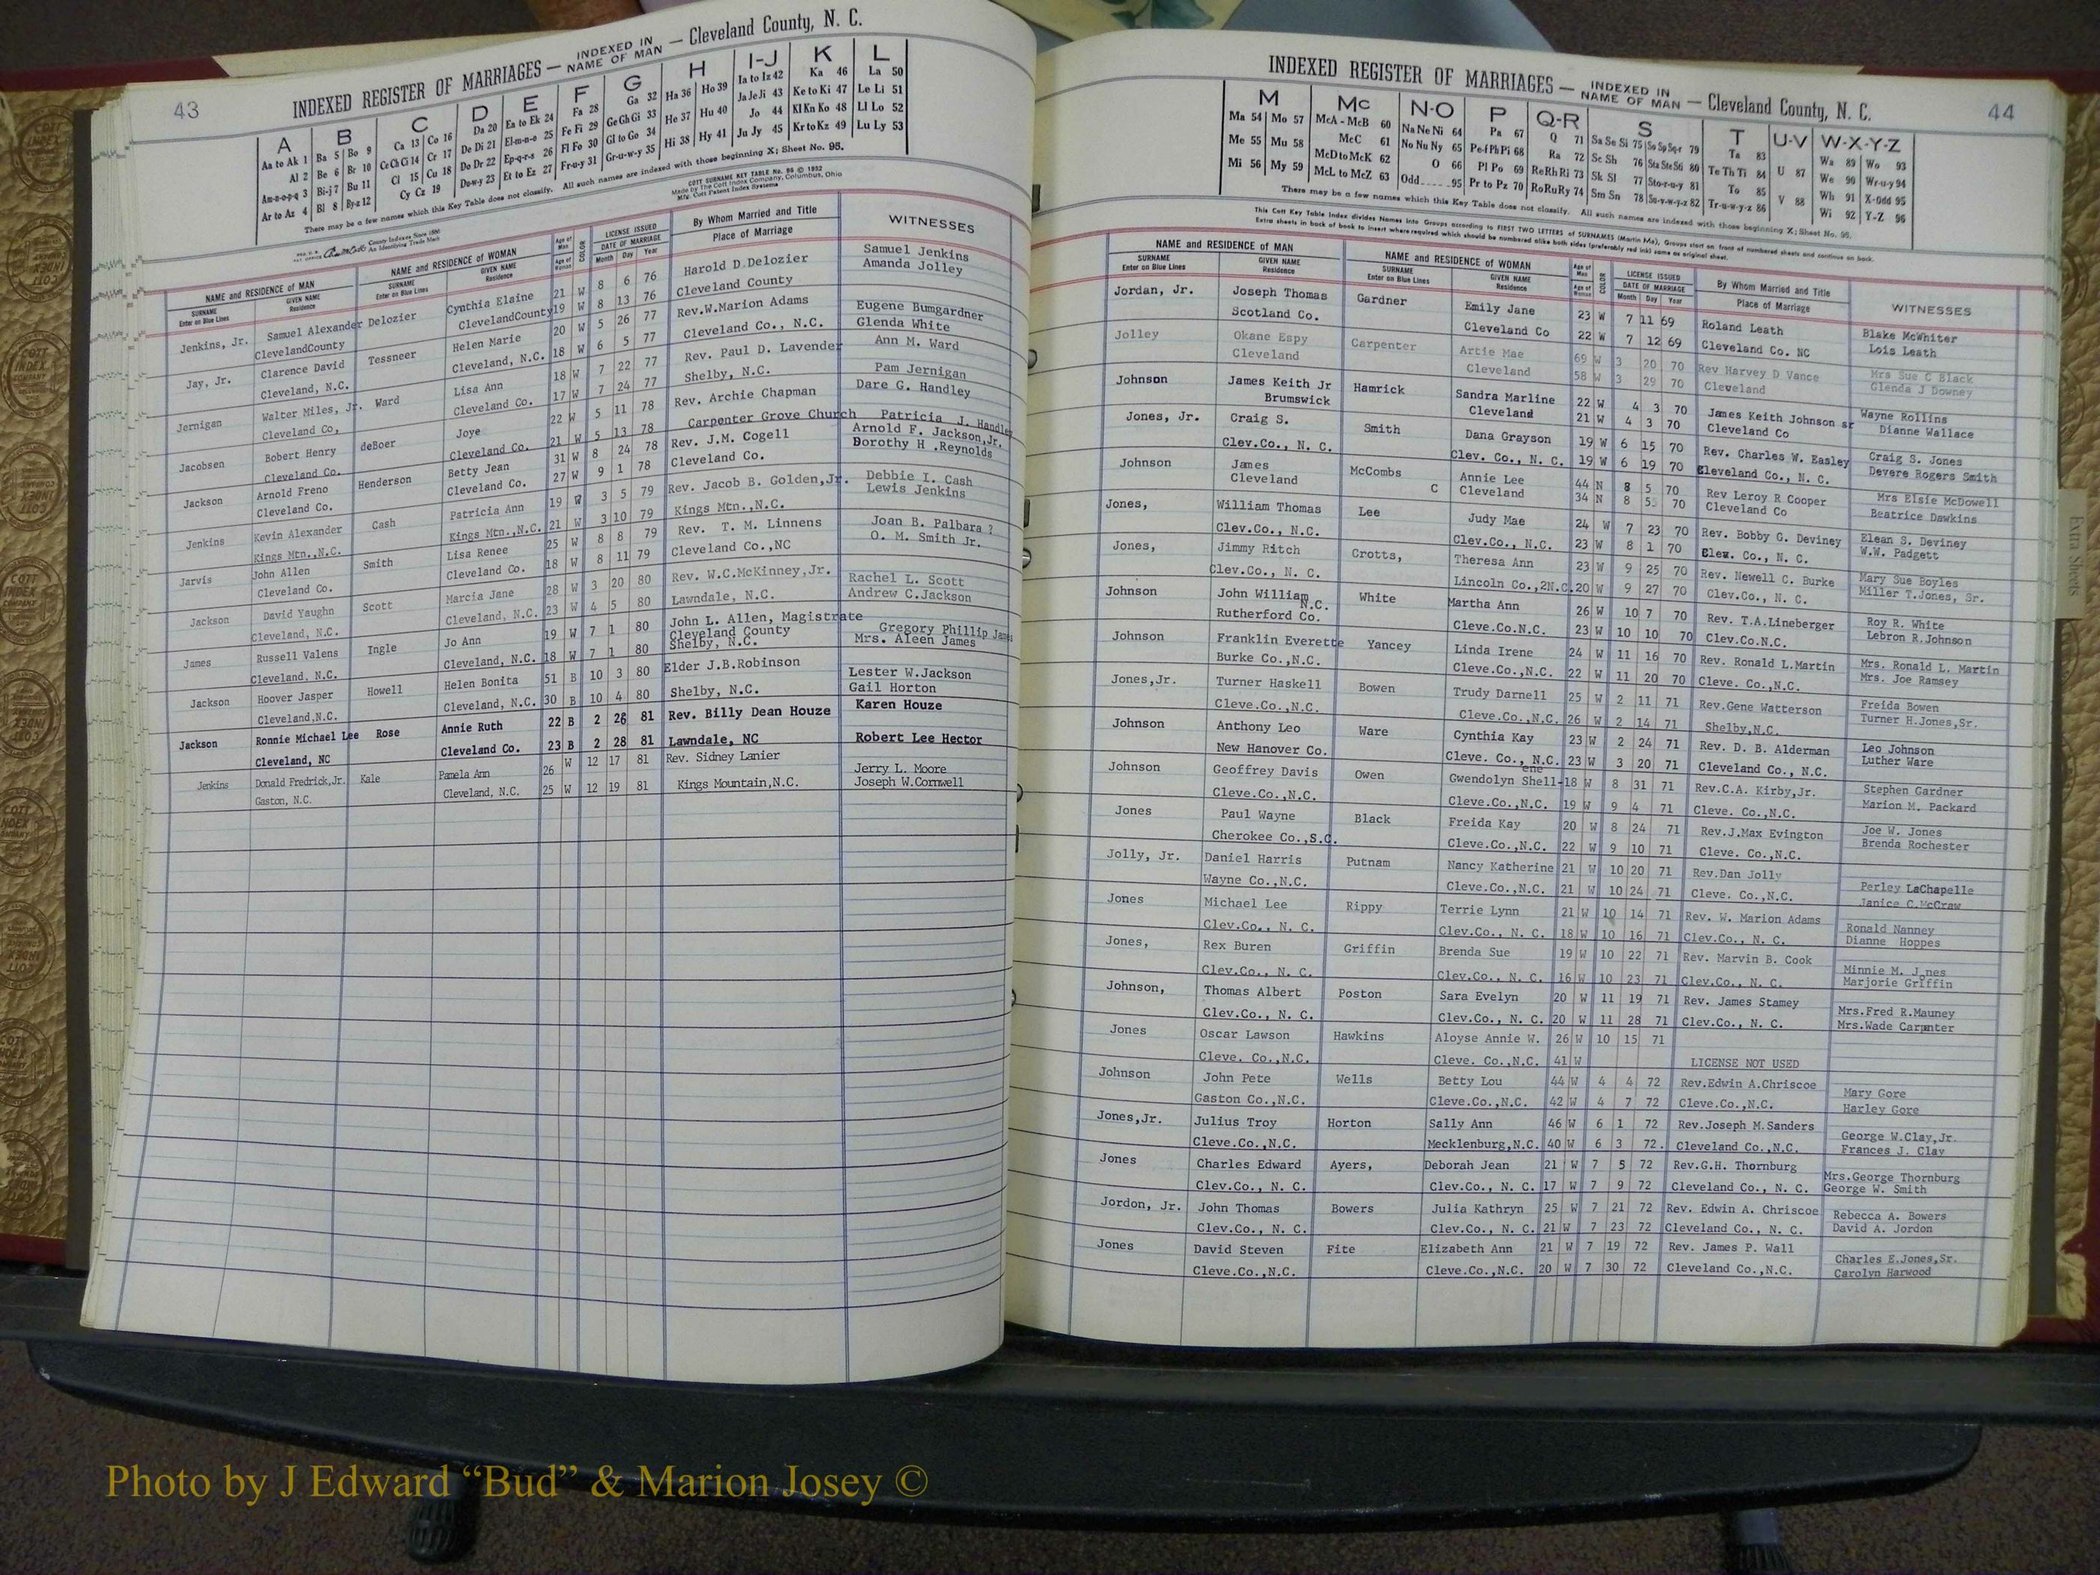 43
INDEXED REGISTER OF MARRIAGES — INDEXED IN NAME OF MAN — Cleveland County, N. C.
A B C D E F G H I-J K L
Aa to Ak 1 Ba 5 Bo 9 Ca 13 Co 16 Da 20 Ea to Ek 24 Fa 28 Ga 32 Ha 36 Ho 39 Ia to Iz 42 Ka 46 La 50
Al 2 Be 6 Br 10 Ce Ch Ci 14 Cr 17 De Di 21 El-m-n-o 25 Fe Fi 29 Ge Gh Gi 33 He 37 Hu 40 Ja Je Ji 43 Ke to Ki 47 Le Li 51
Am-n-o-p-q 3 Bi-j 7 Bu 11 Cl 15 Cu 18 Do Dr 22 Ep-q-r-s 26 Fl Fo 30 Gl to Go 34 Hi 38 Hy 41 Jo 44 Kl Kn Ko 48 Ll Lo 52
Ar to Az 4 Bl 8 By-z 12 Cy Cz 19 Du-w-y 23 Et to Ez 27 Fr-u-y 31 Gr-u-w-y 35 Ju Jy 45 Kr to Kz 49 Lu Ly 53
There may be a few names which this Key Table does not classify. All such names are indexed with those beginning X; Sheet No. 95.
COTT SURNAME KEY TABLE No. 96 © 1952
Made by The Cott Index Company, Columbus, Ohio
Mfg. Cott Patent Index Systems
County Indexes Since 1888
An Identifying Trade Mark
NAME and RESIDENCE of MAN NAME and RESIDENCE of WOMAN Age of Man Age of Woman COLOR LICENSE ISSUED By Whom Married and Title WITNESSES
SURNAME Enter on Blue Lines GIVEN NAME Residence SURNAME Enter on Blue Lines GIVEN NAME Residence DATE OF MARRIAGE Month Day Year Place of Marriage
Jenkins, Jr. Samuel Alexander Delozier Cynthia Elaine 21 W 8 6 76 Harold D. Delozier Samuel Jenkins
ClevelandCounty ClevelandCounty 19 W 8 13 76 Cleveland County Amanda Jolley
Jay, Jr. Clarence David Tessneer Helen Marie 20 W 5 26 77 Rev.W.Marion Adams Eugene Bumgardner
Cleveland, N.C. Cleveland, N.C. 18 W 6 5 77 Cleveland Co., N.C. Glenda White
Jernigan Walter Miles, Jr. Ward Lisa Ann 18 W 7 22 77 Rev. Paul D. Lavender Ann M. Ward
Cleveland Co, Cleveland Co. 17 W 7 24 77 Shelby, N.C. Pam Jernigan
Jacobsen Bobert Henry deBoer Joye 22 W 5 11 78 Rev. Archie Chapman Dare G. Handley
Cleveland Co. Cleveland Co. 21 W 5 13 78 Carpenter Grove Church Patricia J. Handley
Jackson Arnold Freno Henderson Betty Jean 31 W 8 24 78 Rev. J.M. Cogell Arnold F. Jackson,Jr.
Cleveland Co. Cleveland Co. 27 W 9 1 78 Cleveland Co. Dorothy H .Reynolds
Jenkins Kevin Alexander Cash Patricia Ann 19 W 3 5 79 Rev. Jacob B. Golden,Jr. Debbie I. Cash
Kings Mtn.,N.C. Kings Mtn.,N.C. 21 W 3 10 79 Kings Mtn.,N.C. Lewis Jenkins
Jarvis John Allen Smith Lisa Renee 25 W 8 8 79 Rev. T. M. Linnens Joan B. Palbara ?
Cleveland Co. Cleveland Co. 18 W 8 11 79 Cleveland Co.,NC O. M. Smith Jr.
Jackson David Yaughn Scott Marcia Jane 28 W 3 20 80 Rev. W.C.McKinney,Jr. Rachel L. Scott
Cleveland, N.C. Cleveland, N.C. 23 W 4 5 80 Lawndale, N.C. Andrew C.Jackson
James Russell Valens Ingle Jo Ann 19 W 7 1 80 John L. Allen, Magistrate Gregory Phillip James
Cleveland. N.C. Cleveland, N.C. 18 W 7 1 80 Cleveland County Shelby, N.C. Mrs. Aleen James
Jackson Hoover Jasper Howell Helen Bonita 51 B 10 3 80 Elder J.B.Robinson Lester W.Jackson
Cleveland,N.C. Cleveland, N.C. 30 B 10 4 80 Shelby, N.C. Gail Horton
Jackson Ronnie Michael Lee Rose Annie Ruth 22 B 2 26 81 Rev. Billy Dean Houze Karen Houze
Cleveland, NC Cleveland Co. 23 B 2 28 81 Lawndale, NC Robert Lee Hector
Jenkins Donald Fredrick,Jr. Kale Pamela Ann 26 W 12 17 81 Rev. Sidney Lanier Jerry L. Moore
Gaston, N.C. Cleveland, N.C. 25 W 12 19 81 Kings Mountain,N.C. Joseph W.Cornwell
44
INDEXED REGISTER OF MARRIAGES — INDEXED IN NAME OF MAN — Cleveland County, N. C.
M Mc N-O P Q-R S T U-V W-X-Y-Z
Ma 54 Mo 57 McA - McB 60 Na Ne Ni 64 Pa 67 Q 71 Sa Se Si 75 So Sp Sq-r 79 Ta 83 Wa 89 Wo 93
Me 55 Mu 58 McC 61 No Nu Ny 65 Pe-f Ph Pi 68 Ra 72 Sc Sh 76 Sta Ste Sti 80 Te Th Ti 84 U 87 We 90 Wr-u-y 94
Mi 56 My 59 McD to McK 62 O 66 Pl Po 69 Re Rh Ri 73 Sk Sl 77 Sto-r-u-y 81 To 85 V 88 Wh 91 X-Odd 95
McL to McZ 63 Odd 95 Pr to Pz 70 Ro Ru Ry 74 Sm Sn 78 Su-v-w-y-z 82 Tr-u-w-y-z 86 Wi 92 Y-Z 96
There may be a few names which this Key Table does not classify. All such names are indexed with those beginning X; Sheet No. 95.
This Cott Key Table Index divides Names into Groups according to FIRST TWO LETTERS of SURNAMES (Martin Ma), Groups start on front of numbered sheets and continue on back.
Extra sheets in back of book to insert where required which should be numbered alike both sides (preferably red ink) same as original sheet.
NAME and RESIDENCE of MAN NAME and RESIDENCE of WOMAN Age of Man Age of Woman COLOR LICENSE ISSUED By Whom Married and Title WITNESSES
SURNAME Enter on Blue Lines GIVEN NAME Residence SURNAME Enter on Blue Lines GIVEN NAME Residence DATE OF MARRIAGE Month Day Year Place of Marriage
Jordan, Jr. Joseph Thomas Gardner Emily Jane 23 W 7 11 69 Roland Leath Blake McWhiter
Scotland Co. Cleveland Co 22 W 7 12 69 Cleveland Co. NC Lois Leath
Jolley Okane Espy Carpenter Artie Mae 69 W 3 20 70 Rev Harvey D Vance Mrs Sue C Black
Cleveland Cleveland 58 W 3 29 70 Cleveland Glenda J Downey
Johnson James Keith Jr Hamrick Sandra Marline 22 W 4 3 70 James Keith Johnson sr Wayne Rollins
Brumswick Cleveland 21 W 4 3 70 Cleveland Co Dianne Wallace
Jones, Jr. Craig S. Smith Dana Grayson 19 W 6 15 70 Rev. Charles W. Easley Craig S. Jones
Clev.Co., N. C. Clev. Co., N. C. 19 W 6 19 70 Cleveland Co., N. C. Devere Rogers Smith
Johnson James McCombs Annie Lee 44 N 8 5 70 Rev Leroy R Cooper Mrs Elsie McDowell
Cleveland C Cleveland 34 N 8 5 70 Cleveland Co Beatrice Dawkins
Jones, William Thomas Lee Judy Mae 24 W 7 23 70 Rev. Bobby G. Deviney Elean S. Deviney
Clev.Co., N.C. Clev.Co., N.C. 23 W 8 1 70 Clev. Co., N. C. W.W. Padgett
Jones, Jimmy Ritch Crotts, Theresa Ann 23 W 9 25 70 Rev. Newell C. Burke Mary Sue Boyles
Clev.Co., N. C. Lincoln Co.,2N.C. 20 W 9 27 70 Clev.Co., N. C. Miller T.Jones, Sr.
Johnson John William White Martha Ann 26 W 10 7 70 Rev. T.A.Lineberger Roy R. White
Rutherford Co. N.C. Cleve.Co.N.C. 23 W 10 10 70 Clev.Co.N.C. Lebron R.Johnson
Johnson Franklin Everette Yancey Linda Irene 24 W 11 16 70 Rev. Ronald L.Martin Mrs. Ronald L. Martin
Burke Co.,N.C. Cleve.Co.,N.C. 22 W 11 20 70 Cleve. Co.,N.C. Mrs. Joe Ramsey
Jones,Jr. Turner Haskell Bowen Trudy Darnell 25 W 2 11 71 Rev.Gene Watterson Freida Bowen
Cleve.Co.,N.C. Cleve.Co.,N.C. 26 W 2 14 71 Shelby,N.C. Turner H.Jones,Sr.
Johnson Anthony Leo Ware Cynthia Kay 23 W 2 24 71 Rev. D. B. Alderman Leo Johnson
New Hanover Co. Cleve. Co., N.C. 23 W 3 20 71 Cleveland Co., N.C. Luther Ware
Johnson Geoffrey Davis Owen Gwendolyn Shell-ene 18 W 8 31 71 Rev.C.A. Kirby,Jr. Stephen Gardner
Cleve.Co.,N.C. Cleve.Co.,N.C. 19 W 9 4 71 Cleve. Co.,N.C. Marion M. Packard
Jones Paul Wayne Black Freida Kay 20 W 8 24 71 Rev.J.Max Evington Joe W. Jones
Cherokee Co.,S.C. Cleve.Co.,N.C. 22 W 9 10 71 Cleve. Co.,N.C. Brenda Rochester
Jolly, Jr. Daniel Harris Putnam Nancy Katherine 21 W 10 20 71 Rev.Dan Jolly Perley LaChapelle
Wayne Co.,N.C. Cleve.Co.,N.C. 21 W 10 24 71 Cleve. Co.,N.C. Janice C.McCraw
Jones Michael Lee Rippy Terrie Lynn 21 W 10 14 71 Rev. W. Marion Adams Ronald Nanney
Clev.Co., N. C. Clev.Co., N. C. 18 W 10 16 71 Clev.Co., N. C. Dianne Hoppes
Jones, Rex Buren Griffin Brenda Sue 19 W 10 22 71 Rev. Marvin B. Cook Minnie M. Jones
Clev.Co., N. C. Clev.Co., N. C. 16 W 10 23 71 Clev.Co., N. C. Marjorie Griffin
Johnson, Thomas Albert Poston Sara Evelyn 20 W 11 19 71 Rev. James Stamey Mrs.Fred R.Mauney
Clev.Co., N. C. Clev.Co., N. C. 20 W 11 28 71 Clev.Co., N. C. Mrs.Wade Carpnter
Jones Oscar Lawson Hawkins Aloyse Annie W. 26 W 10 15 71
Cleve. Co.,N.C. Cleve. Co.,N.C. 41 W LICENSE NOT USED
Johnson John Pete Wells Betty Lou 44 W 4 4 72 Rev.Edwin A.Chriscoe Mary Gore
Gaston Co.,N.C. Cleve.Co.,N.C. 42 W 4 7 72 Cleve.Co.,N.C. Harley Gore
Jones,Jr. Julius Troy Horton Sally Ann 46 W 6 1 72 Rev.Joseph M.Sanders George W.Clay,Jr.
Cleve.Co.,N.C. Mecklenburg,N.C. 40 W 6 3 72. Cleveland Co.,N.C. Frances J. Clay
Jones Charles Edward Ayers, Deborah Jean 21 W 7 5 72 Rev.G.H. Thornburg Mrs.George Thornburg
Clev.Co., N. C. Clev.Co., N. C. 17 W 7 9 72 Cleveland Co., N. C. George W. Smith
Jordon, Jr. John Thomas Bowers Julia Kathryn 25 W 7 21 72 Rev. Edwin A. Chriscoe Rebecca A. Bowers
Clev.Co., N. C. Clev.Co., N. C. 21 W 7 23 72 Cleveland Co., N. C. David A. Jordon
Jones David Steven Fite Elizabeth Ann 21 W 7 19 72 Rev. James P. Wall Charles E.Jones,Sr.
Cleve.Co.,N.C. Cleve.Co.,N.C. 20 W 7 30 72 Cleveland Co.,N.C. Carolyn Harwood
Extra Sheets
Photo by J Edward “Bud” & Marion Josey ©